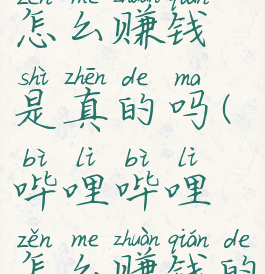 zěn me zhuàn qián
怎么赚钱
shì zhēn de ma
是真的吗(
bì lì bì lì
哔哩哔哩
zěn me zhuàn qián de
怎么赚钱的